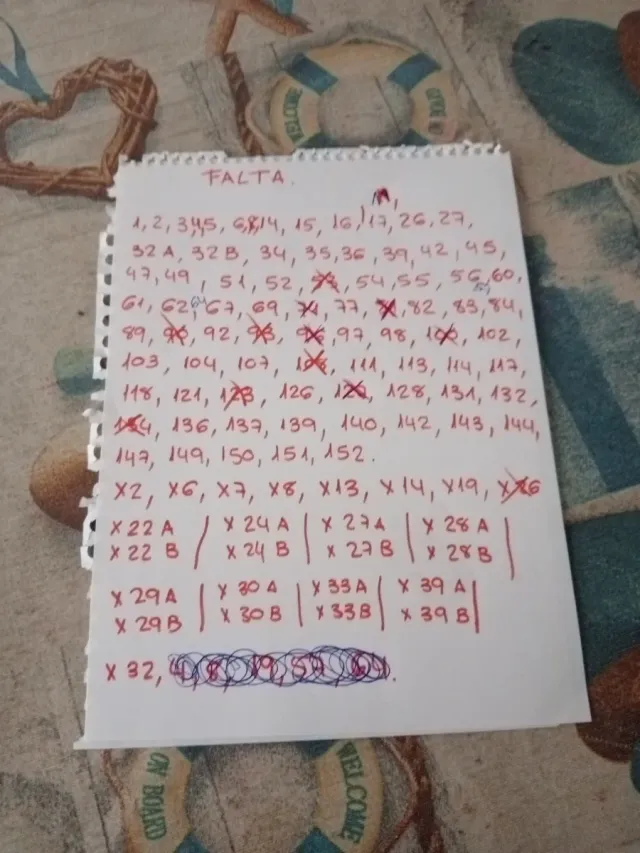 WELCOME
ON BOARD
FALTA.
1, 2, 3, 4, 5, 6, 8, 14, 15, 16, 17, 26, 27,
32A, 32B, 34, 35, 36, 39, 42, 45,
47, 49, 51, 52, 53, 54, 55, 56, 60,
61, 62, 67, 69, 71, 77, 82, 83, 84,
89, 92, 93, 97, 98, 102,
103, 104, 107, 111, 113, 114, 117,
118, 121, 123, 126, 128, 131, 132,
134, 136, 137, 139, 140, 142, 143, 144,
147, 149, 150, 151, 152.
X2, X6, X7, X8, X13, X14, X19, X26
X22A / X24A | X27A | X28A |
X22B X24B X27B X28B
X29A | X30A | X33A | X39A |
X29B X30B X33B X39B
X32, 4, 8, 19, 57, 64.
ON BOARD
WELCOME